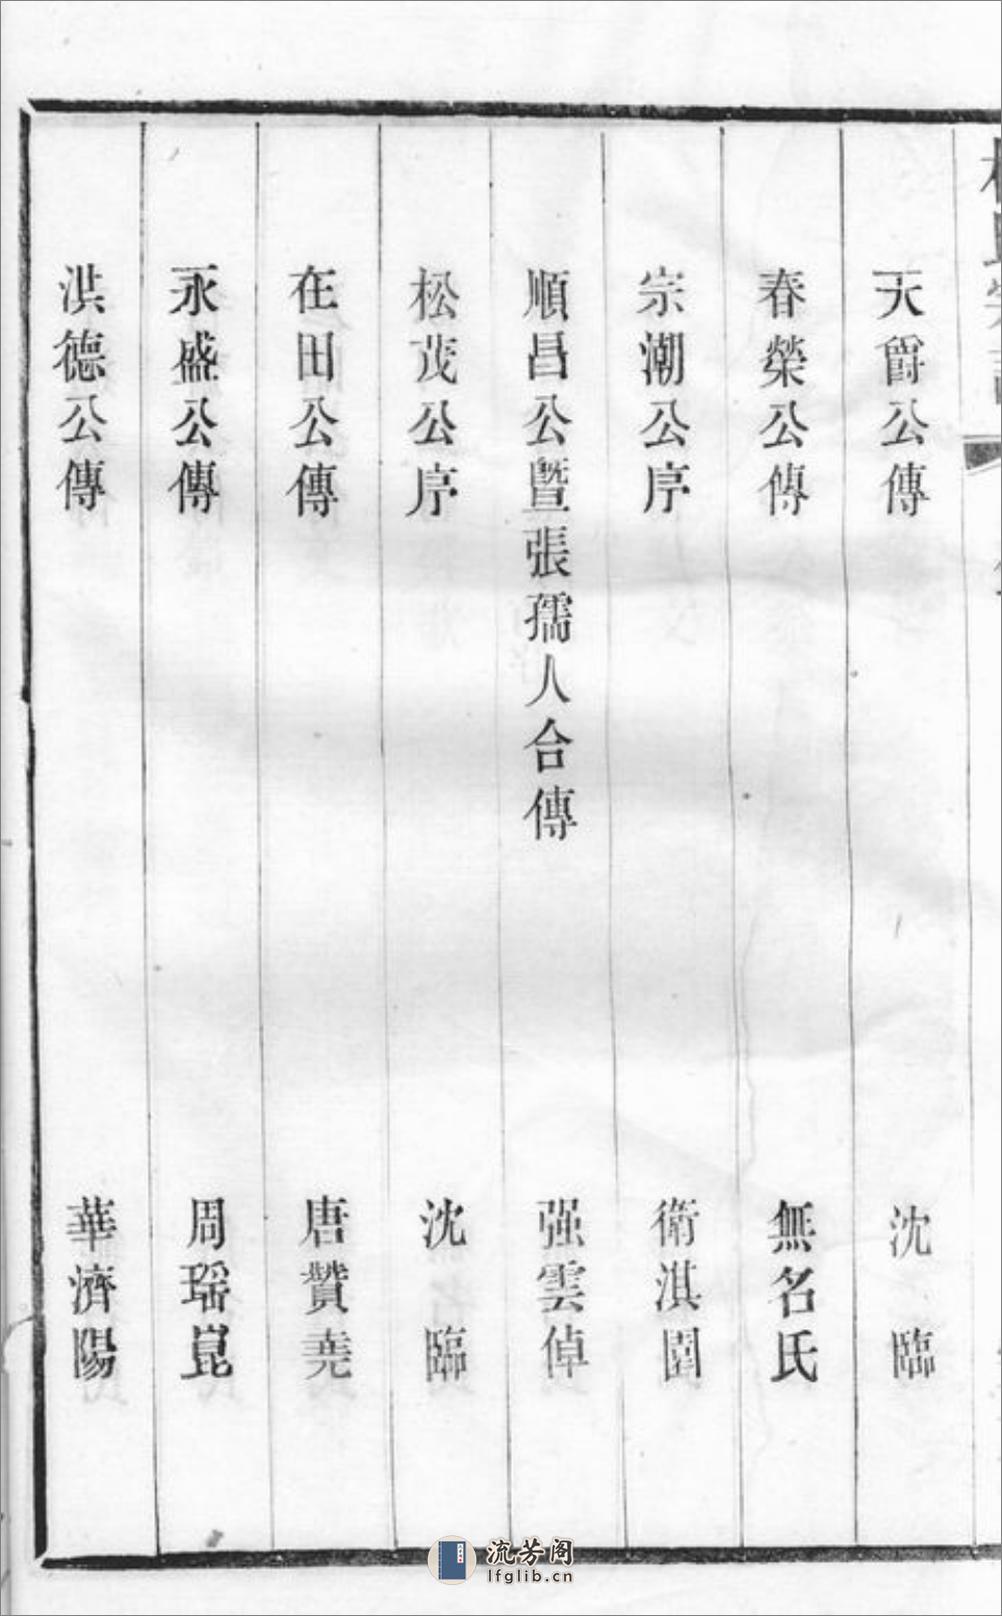 天爵公傳 沈臨
春榮公傳 無名氏
宗潮公序 衛淇園
順昌公暨張孺人合傳 强雲倬
松茂公序 沈臨
在田公傳 唐贊堯
永盛公傳 周瑶崑
洪德公傳 華濟陽
流芳阁
lfglib.cn